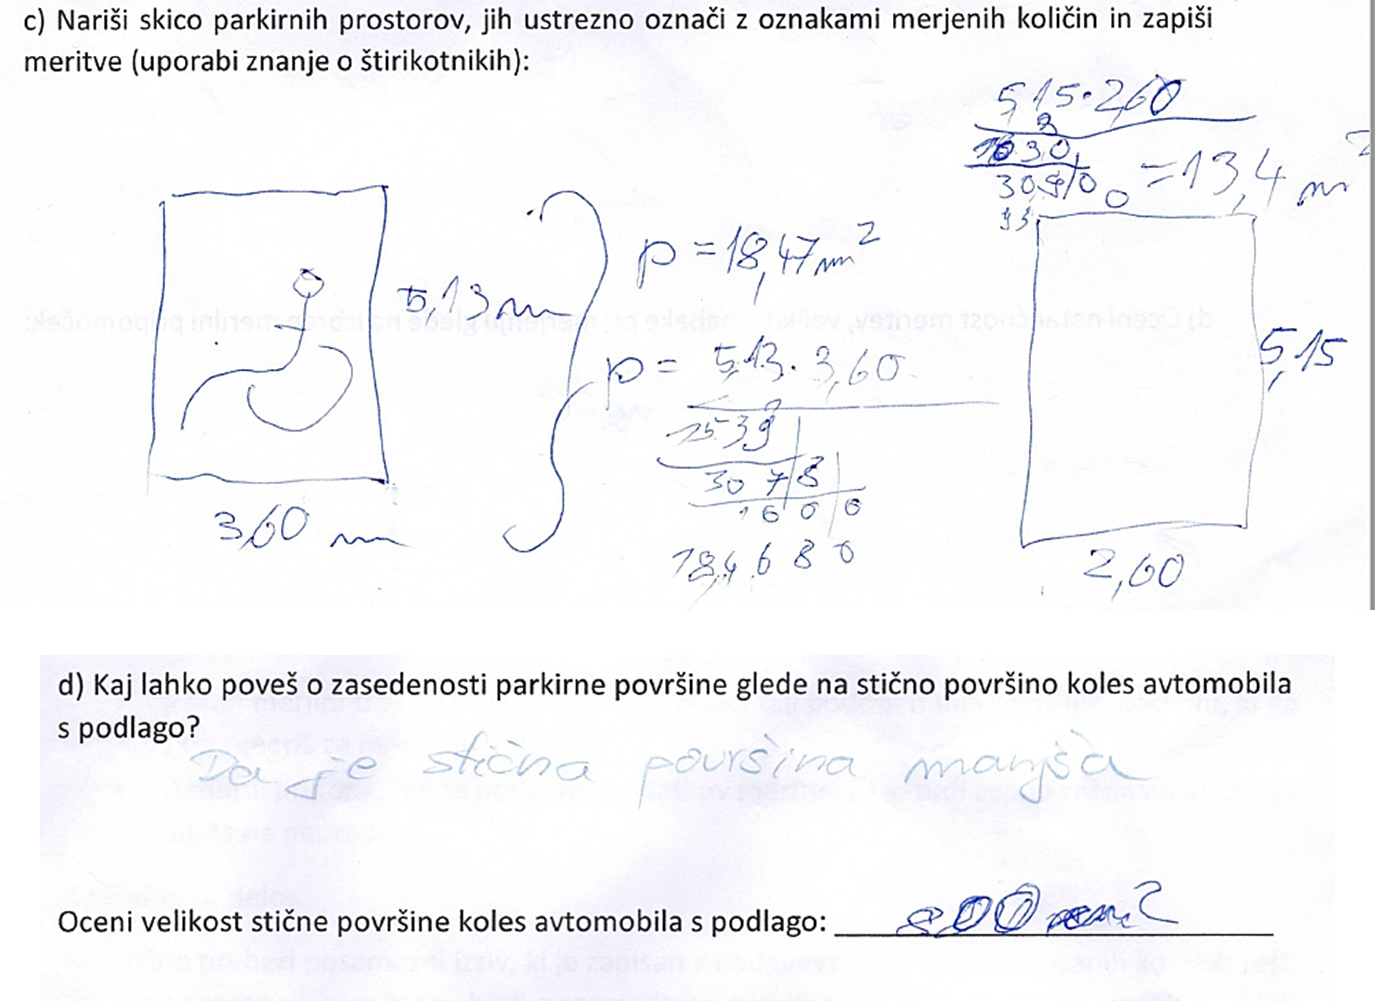 c) Nariši skico parkirnih prostorov, jih ustrezno označi z oznakami merjenih količin in zapiši
meritve (uporabi znanje o štirikotnikih):
5,15·2,60
30,90
= 13,4 m²
5,13 m
3,60 m
p = 18,47 m²
p = 5,13 · 3,60
1539
3078
000
18,4680
5,15
2,60
d) Kaj lahko poveš o zasedenosti parkirne površine glede na stično površino koles avtomobila
s podlago?
Da je stična površina manjša
Oceni velikost stične površine koles avtomobila s podlago: 800 cm²